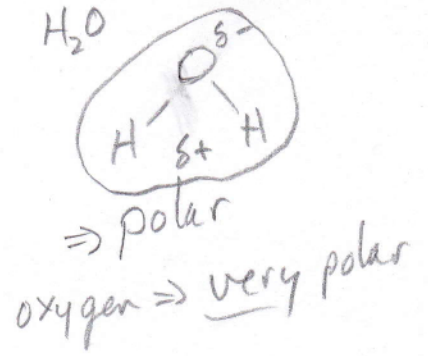 H₂O
O δ-
H H
δ+
⇒ polar
oxygen ⇒ very polar